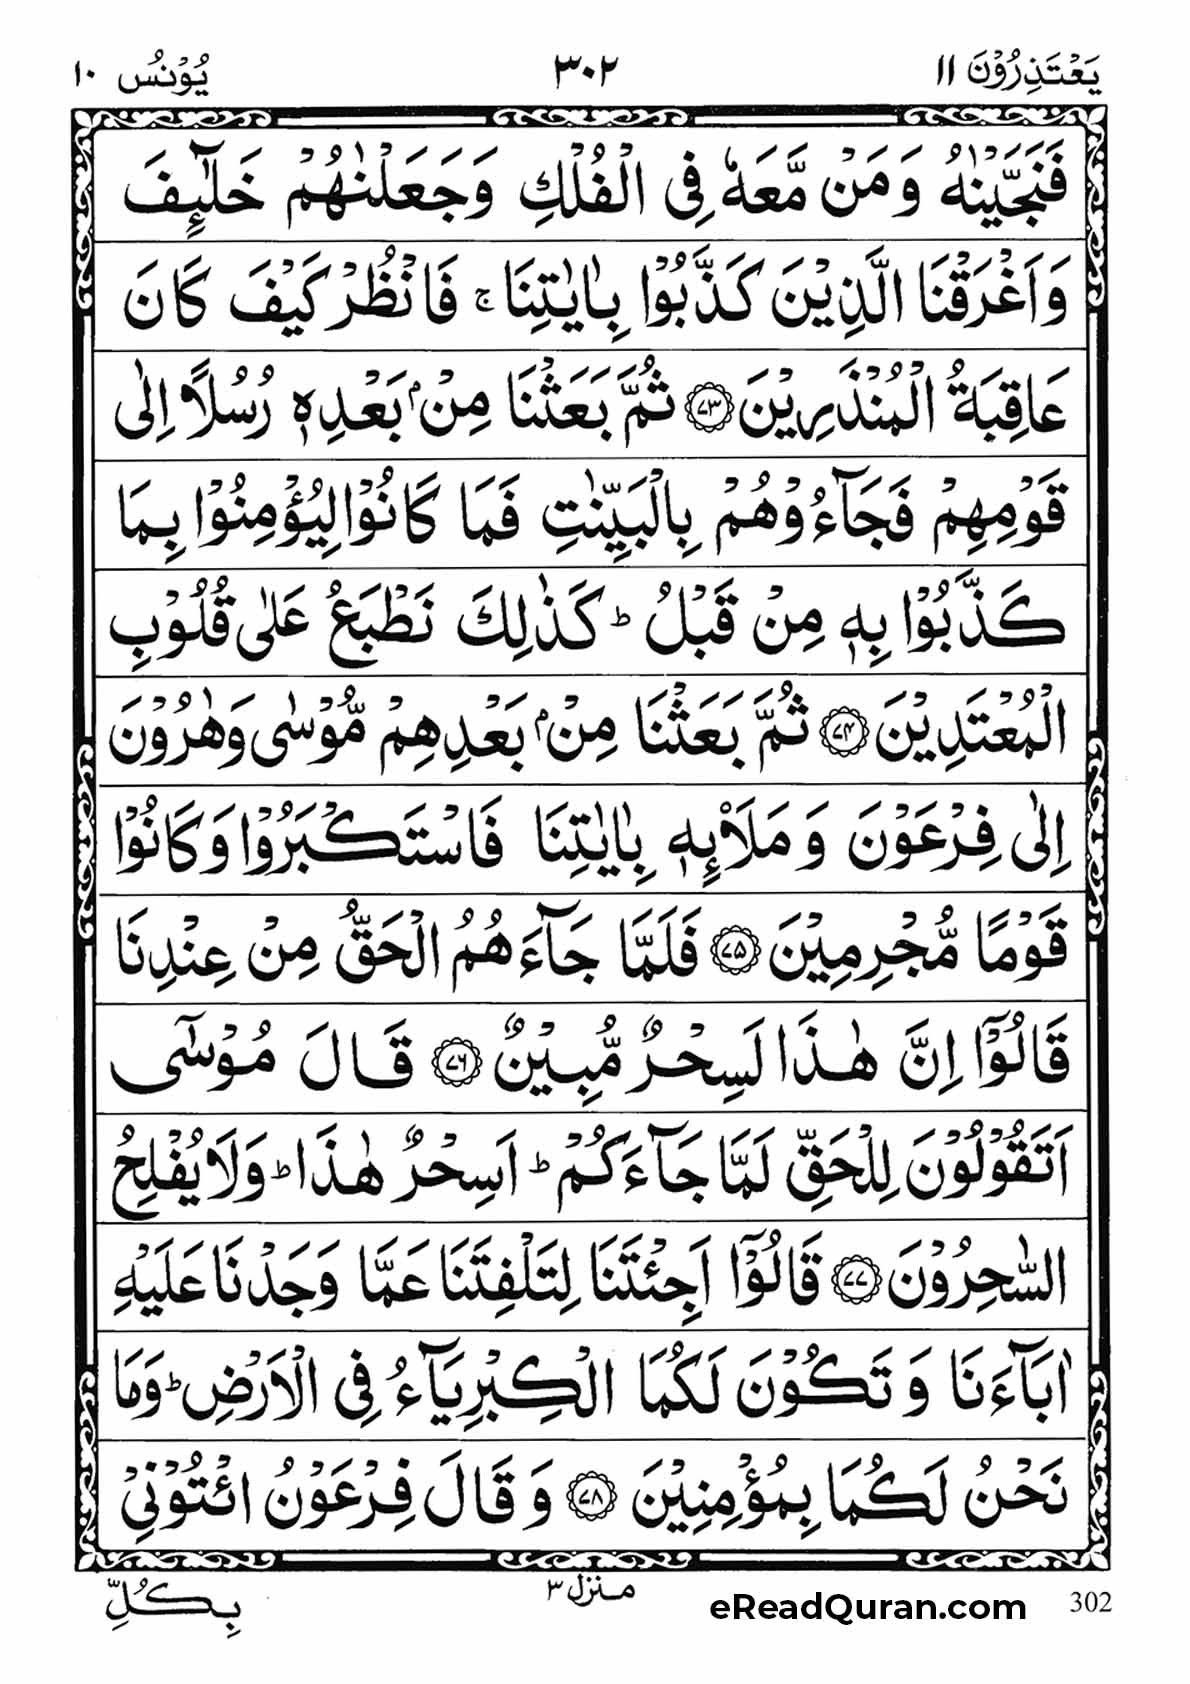 يَعْتَذِرُوْنَ ١١ ٣٠٢ يُوْنُسُ ١٠
فَنَجَّيْنٰهُ وَمَنْ مَّعَهٗ فِى الْفُلْكِ وَجَعَلْنٰهُمْ خَلٰٓئِفَ
وَاَغْرَقْنَا الَّذِيْنَ كَذَّبُوْا بِاٰيٰتِنَا ۚ فَانْظُرْ كَيْفَ كَانَ
عَاقِبَةُ الْمُنْذَرِيْنَ ﴿۷۳﴾ ثُمَّ بَعَثْنَا مِنْۢ بَعْدِهٖ رُسُلًا اِلٰى
قَوْمِهِمْ فَجَآءُوْهُمْ بِالْبَيِّنٰتِ فَمَا كَانُوْا لِيُؤْمِنُوْا بِمَا
كَذَّبُوْا بِهٖ مِنْ قَبْلُ ؕ كَذٰلِكَ نَطْبَعُ عَلٰى قُلُوْبِ
الْمُعْتَدِيْنَ ﴿۷۴﴾ ثُمَّ بَعَثْنَا مِنْۢ بَعْدِهِمْ مُّوْسٰى وَهٰرُوْنَ
اِلٰى فِرْعَوْنَ وَمَلَا۟ئِهٖ بِاٰيٰتِنَا فَاسْتَكْبَرُوْا وَكَانُوْا
قَوْمًا مُّجْرِمِيْنَ ﴿۷۵﴾ فَلَمَّا جَآءَهُمُ الْحَقُّ مِنْ عِنْدِنَا
قَالُوْۤا اِنَّ هٰذَا لَسِحْرٌ مُّبِيْنٌ ﴿۷۶﴾ قَالَ مُوْسٰٓى
اَتَقُوْلُوْنَ لِلْحَقِّ لَمَّا جَآءَكُمْ ؕ اَسِحْرٌ هٰذَا ؕ وَلَا يُفْلِحُ
السّٰحِرُوْنَ ﴿۷۷﴾ قَالُوْۤا اَجِئْتَنَا لِتَلْفِتَنَا عَمَّا وَجَدْنَا عَلَيْهِ
اٰبَآءَنَا وَتَكُوْنَ لَكُمَا الْكِبْرِيَآءُ فِى الْاَرْضِ ؕ وَمَا
نَحْنُ لَكُمَا بِمُؤْمِنِيْنَ ﴿۷۸﴾ وَقَالَ فِرْعَوْنُ ائْتُوْنِىْ
بِكُلِّ منزل ٣ eReadQuran.com 302